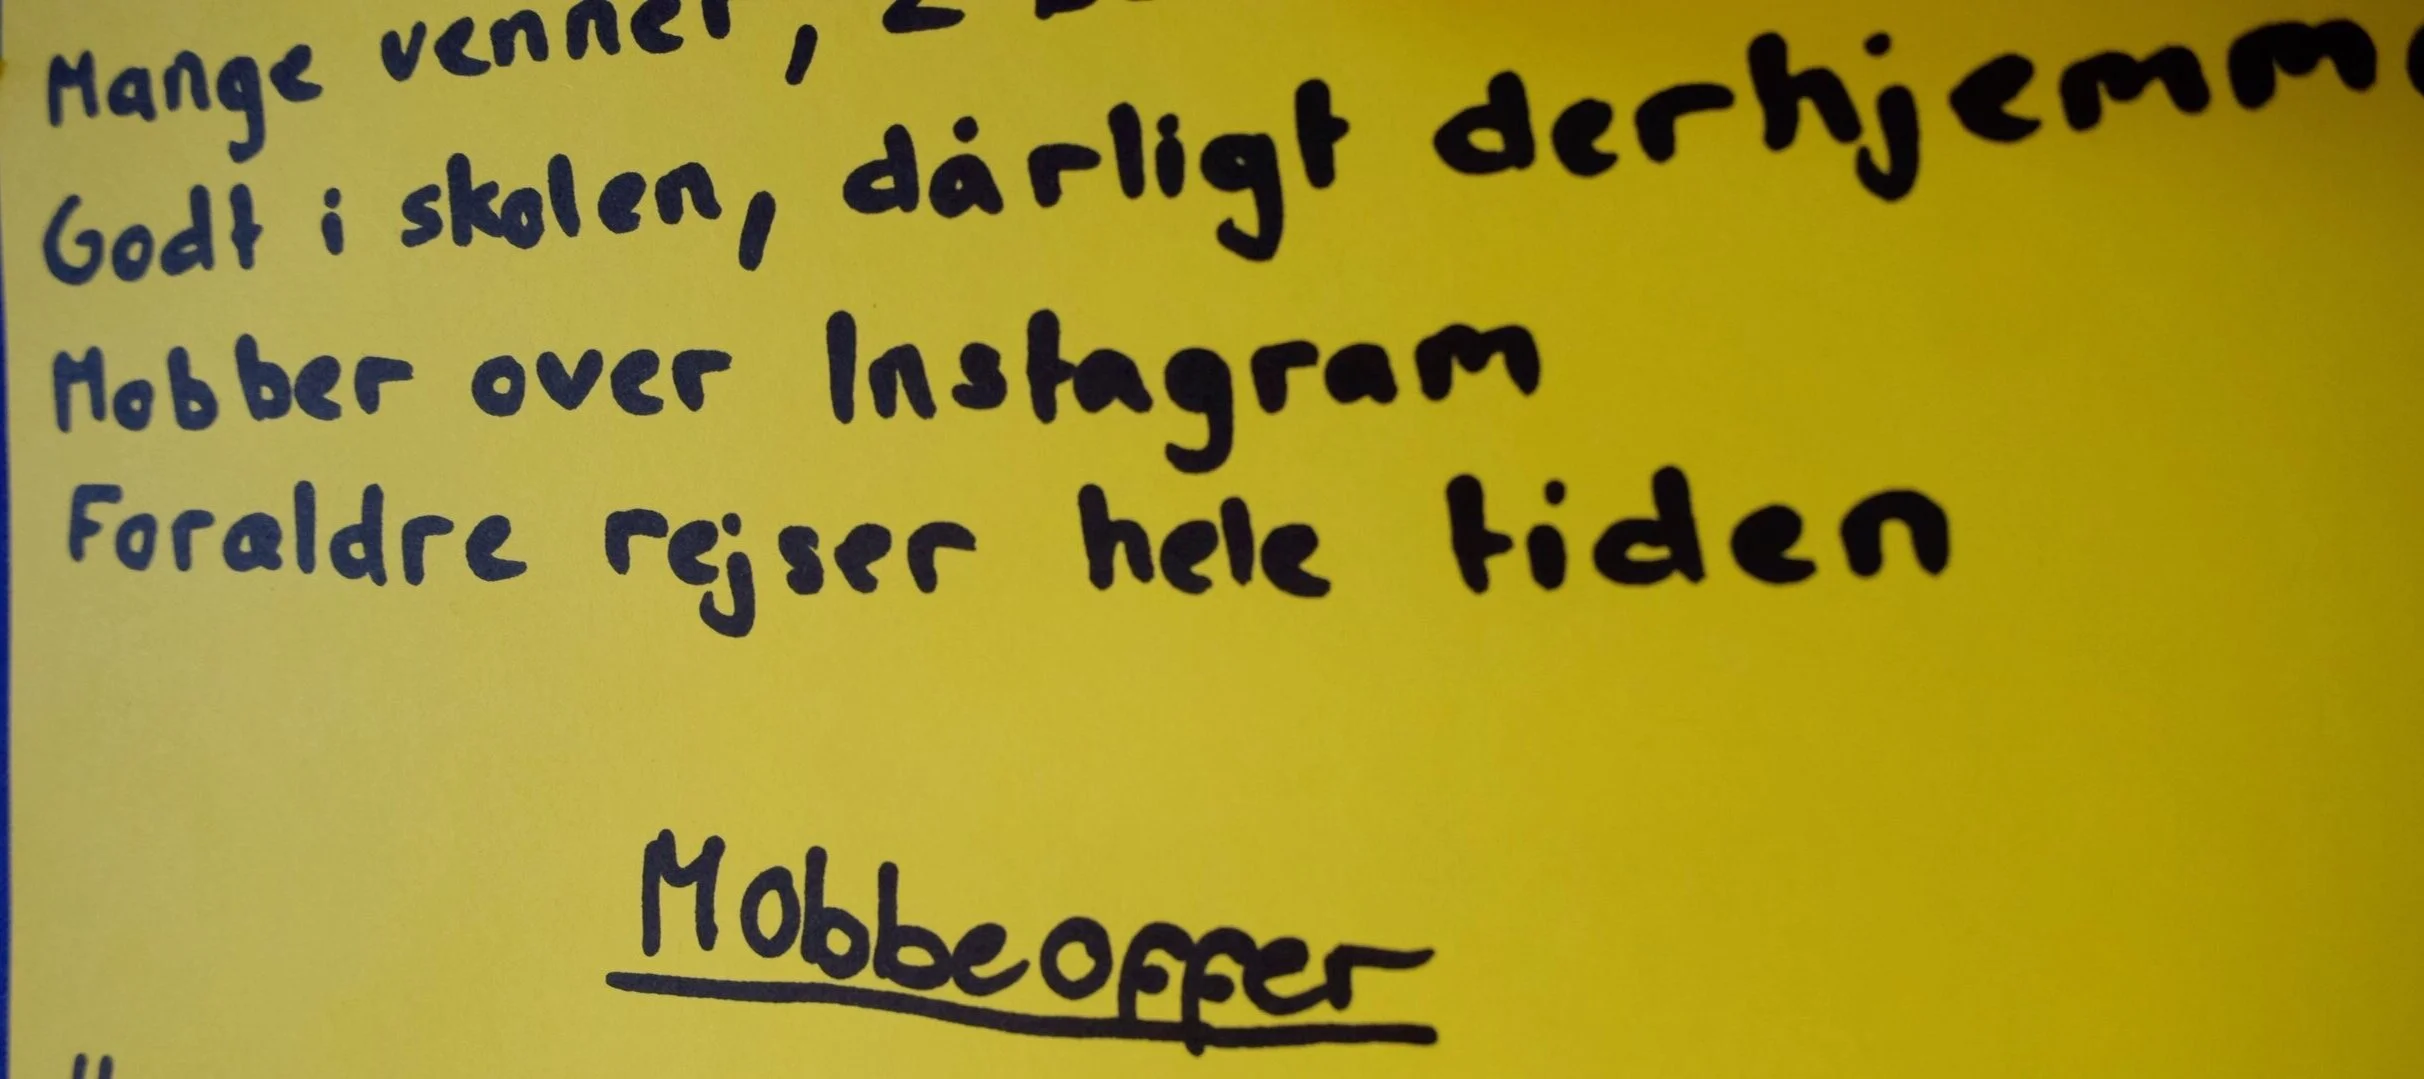 Mange venner,
Godt i skolen, dårligt derhjemme
Mobber over Instagram
Forældre rejser hele tiden
Mobbeoffer